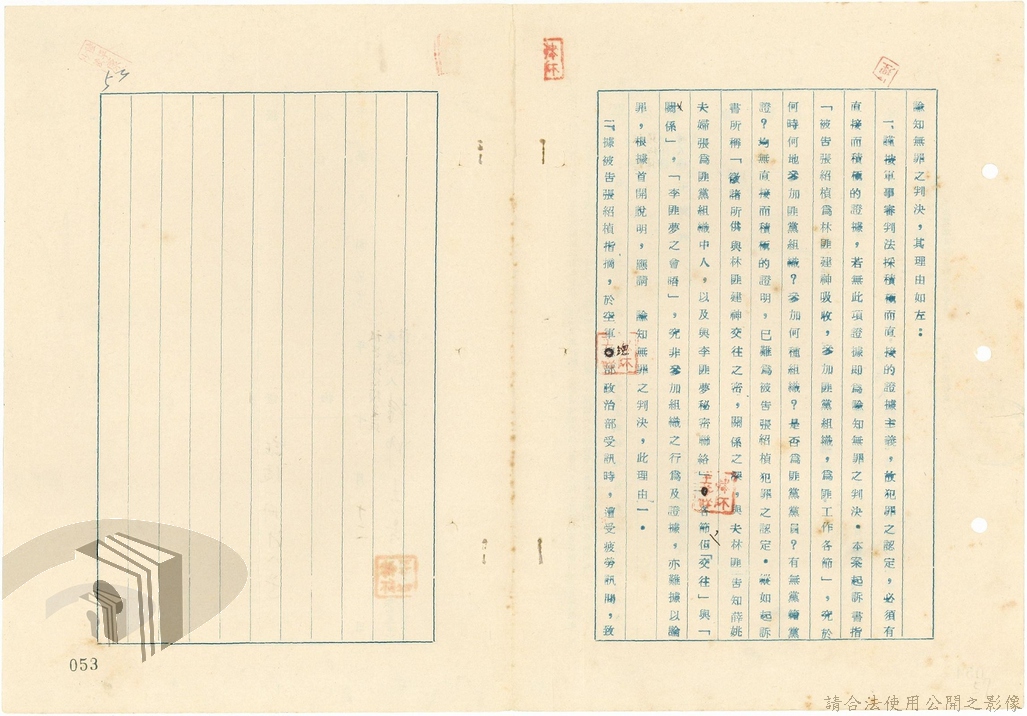 諭知無罪之判決，其理由如左：
一、謹按軍事審判法採積極而直接的證據主義，故犯罪之認定，必須有
直接而積極的證據，若無此項證據即爲諭知無罪之判決。本案起訴書指
「被告張紹楨爲林匪建神吸收，參加匪黨組織，爲匪工作各節」，究於
何時何地參加匪黨組織？參加何種組織？是否爲匪黨黨員？有無黨證黨
證？均無直接而積極的證明，已難爲被告張紹楨犯罪之認定。縱如起訴
書所稱「徵諸所供與林匪建神交往之密，關係之深，與夫林匪告知薛姚
夫婦張爲匪黨組織中人，以及與李匪夢秘密聯絡」各節但「交往」與「
關係」，「李匪夢之會晤」，究非參加組織之行爲及證據，亦難據以論
罪，根據首開說明，應請　諭知無罪之判決，此理由一。
二、據被告張紹楨指摘，於空軍總部政治部受訊時，遭受疲勞訊問，致
53
053
請合法使用公開之影像